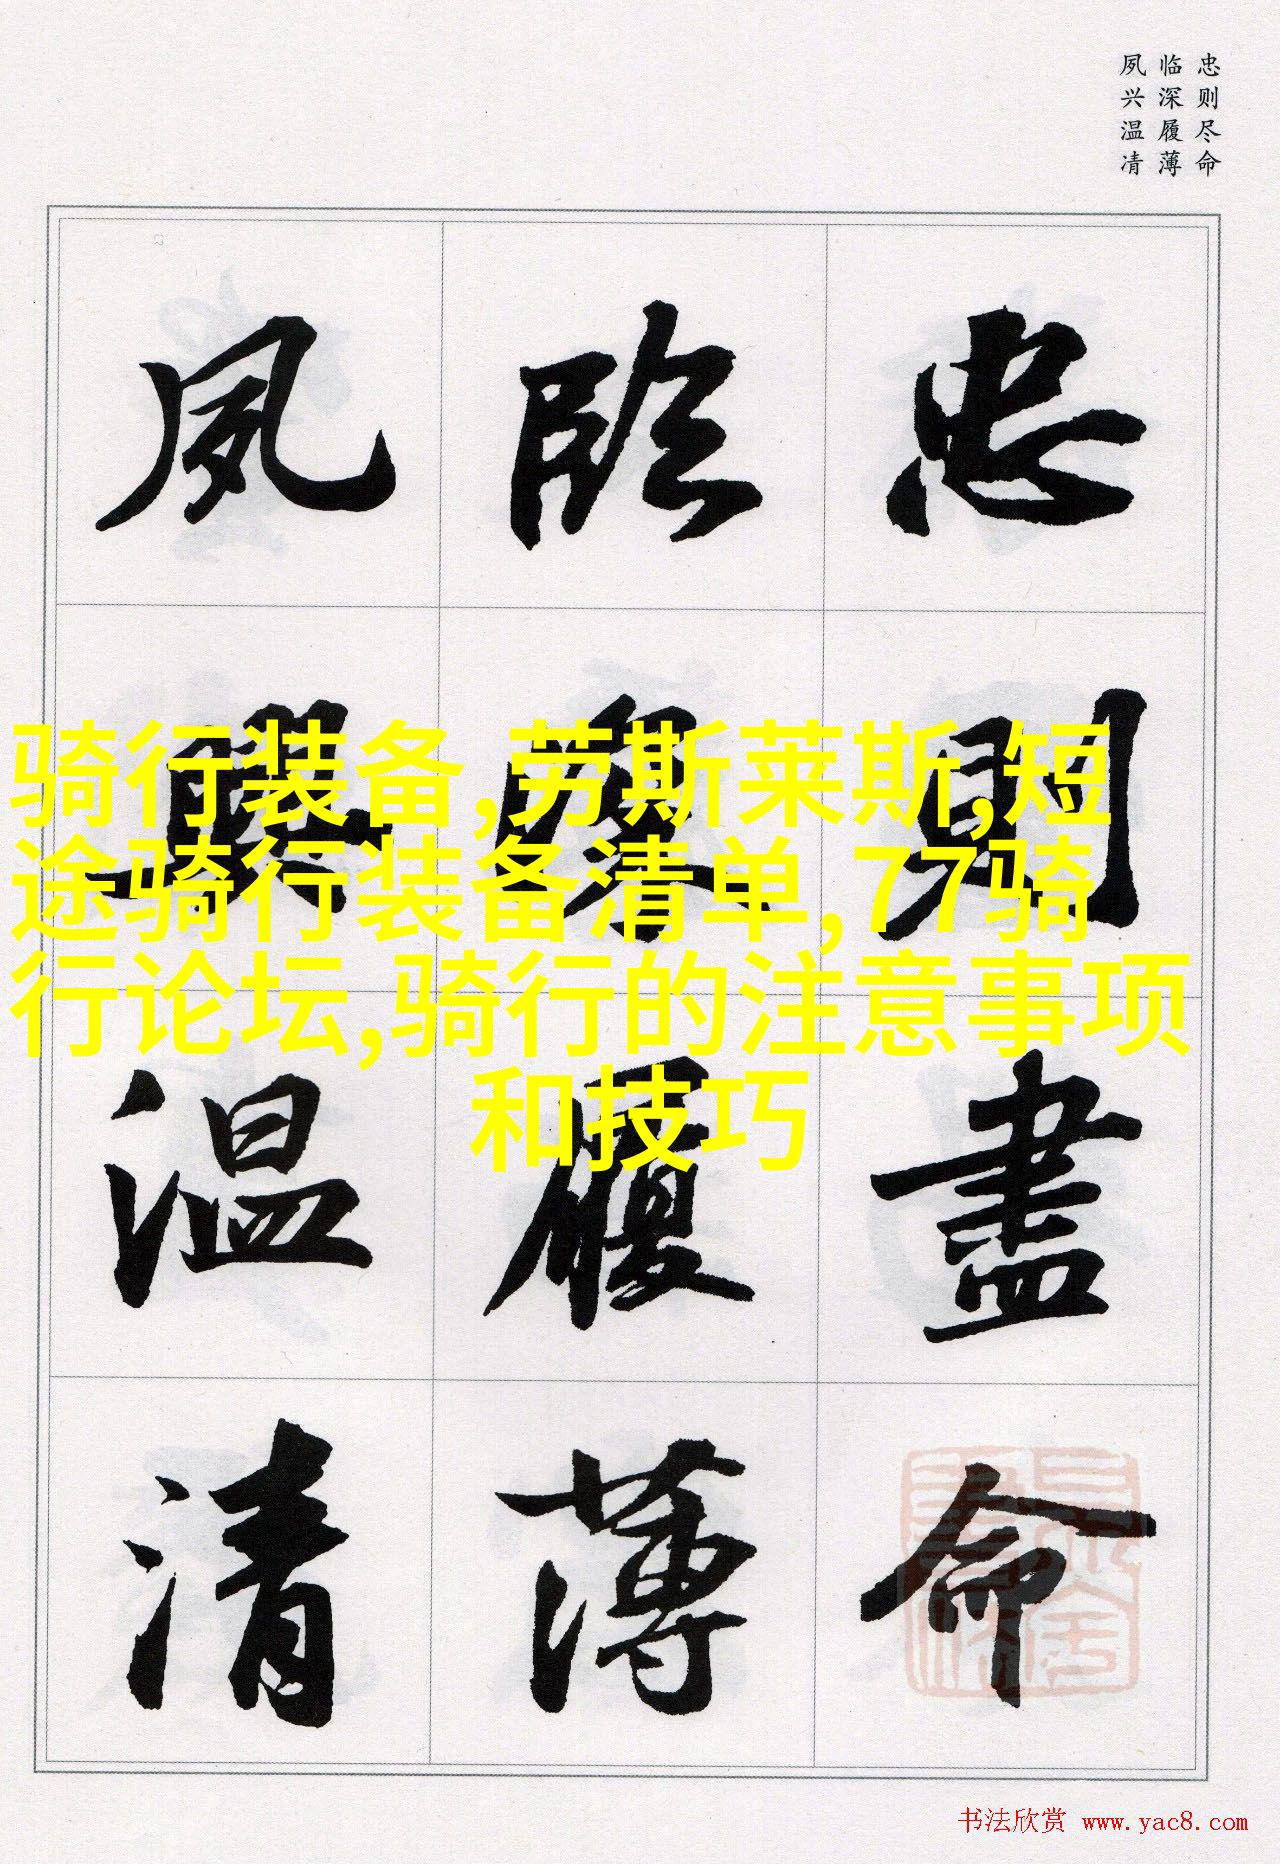 忠则尽命
临深履薄
夙兴温凊
忠則盡命
臨深履薄
夙興温清
骑行装备,劳斯莱斯,短
途骑行装备清单,77骑
行论坛,骑行的注意事项
和技巧
书法欣赏 www.yac8.com